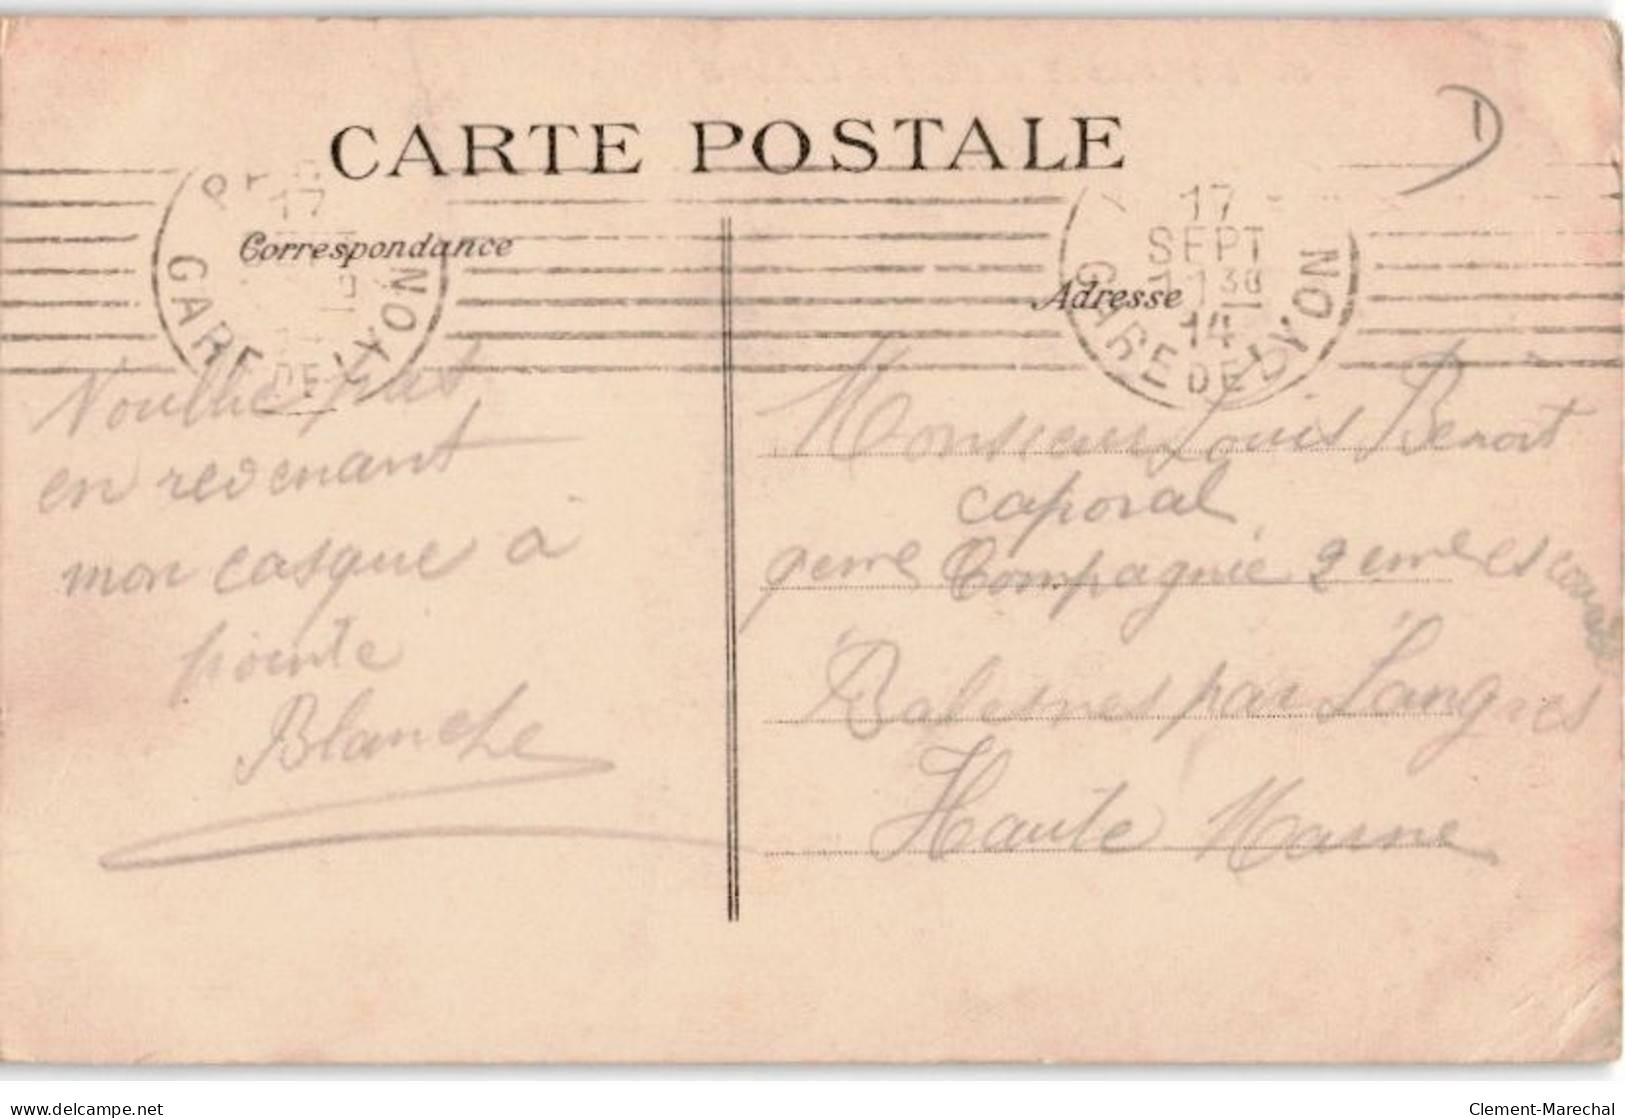 CARTE POSTALE
Correspondance
Adresse
17
GARE DE LYON
17
SEPT
1130
14
GARE DE LYON
Noublie pas
en revenant
mon casque à
pointe
Blanche
Monsieur Louis Benoit
caporal
9eme Compagnie 2eme escouade
Balesmes par Langres
Haute Marne
delcampe.net
Clement-Marechal